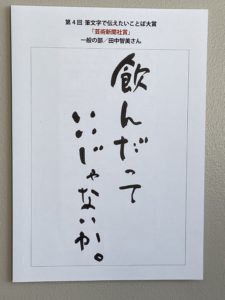 第4回 筆文字で伝えたいことば大賞
「芸術新聞社賞」
一般の部/田中智美さん
飲んだって
いいじゃないか。